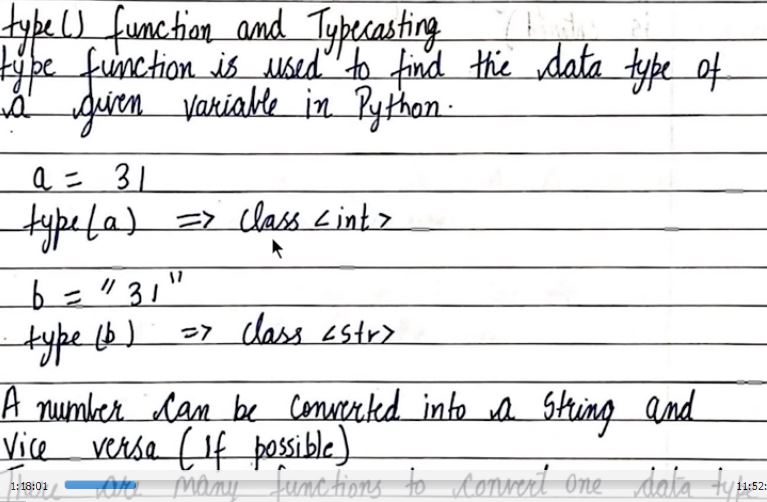 type() function and Typecasting
type function is used to find the data type of
a given variable in Python.
a = 31
type(a) => class <int>
b = "31"
type(b) => class <str>
A number can be converted into a string and
vice versa (if possible)
There are many functions to convert one data type
1:18:01
11:52: